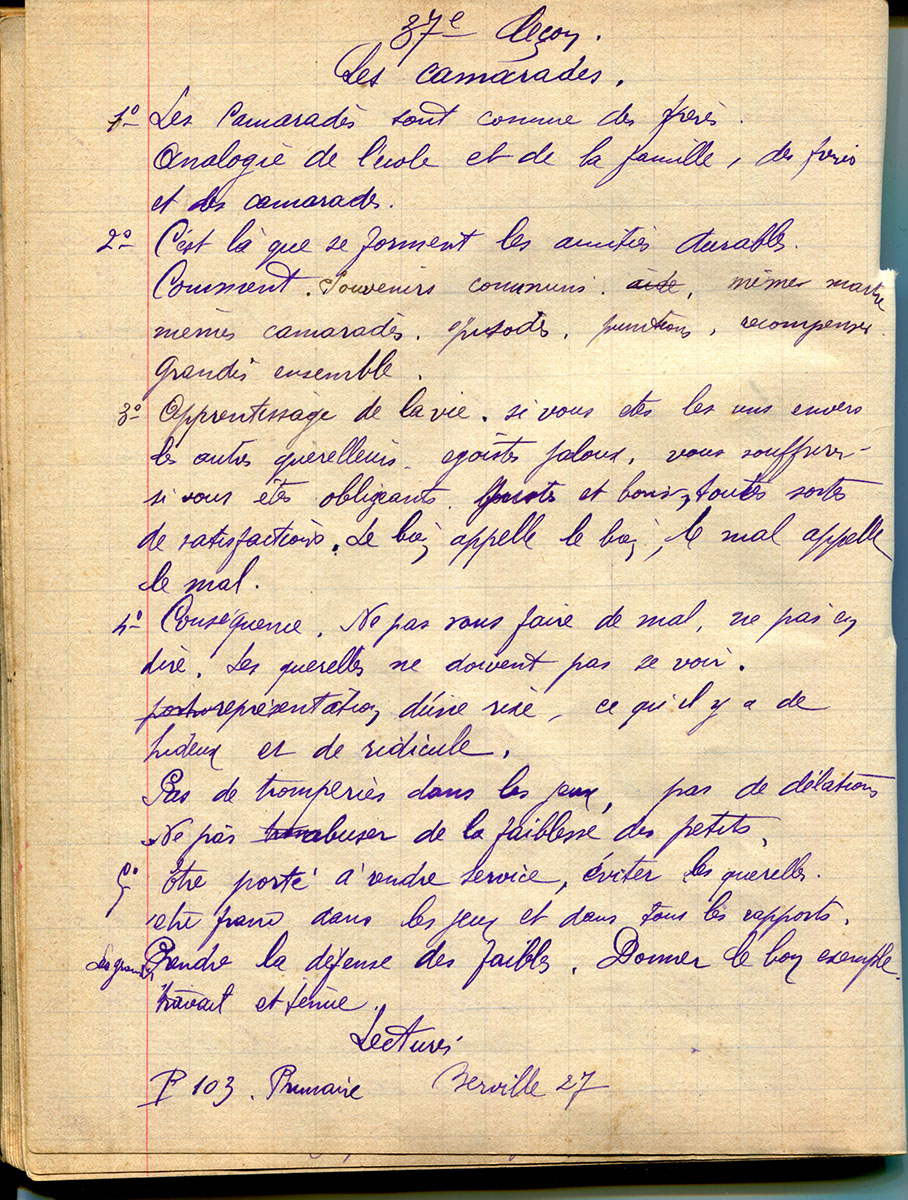 37e leçon.
Les camarades.
1o Les camarades sont comme des frères.
Analogie de l'école et de la famille, des frères
et des camarades.
2o C'est là que se forment les amitiés durables.
Comment. Souvenirs communs. aide, mêmes maître
mêmes camarades. épisodes, punitions, récompenses.
Grandis ensemble.
3o Apprentissage de la vie. si vous êtes les uns envers
les autres querelleurs. égoïstes jaloux, vous souffrirez-
si vous êtes obligeants. justes et bons, toutes sortes
de satisfactions. Le bien appelle le bien, le mal appelle
le mal.
4o Conséquence. Ne pas vous faire de mal, ne pas en
dire. Les querelles ne doivent pas se voir.
représentation d'une rixe, ce qu'il y a de
hideux et de ridicule.
Pas de tromperies dans les jeux, pas de délations
Ne pas abuser de la faiblesse des petits.
5o Être porté à rendre service, éviter les querelles.
être franc dans les jeux et dans tous les rapports.
Les grands Prendre la défense des faibles. Donner le bon exemple.
travail et tenue.
Lectures
P 103. Primaire Berville 27